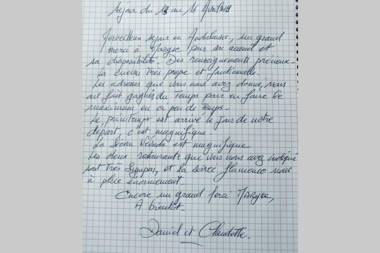 Séjour du 12 au 16 Avril
Merveilleux séjour en Andalousie, un grand
merci à Margee pour son accueil et
sa disponibilité. Des renseignements précieux.
La cuisine très propre et fonctionnelle.
Les adresses que vous nous avez données, nous
ont fait gagner du temps pour en faire le
maximum en si peu de temps.
Le printemps est arrivé le jour de notre
départ, c'est magnifique.
La Sierra Nevada est magnifique.
Les deux restaurants que vous nous avez indiqué
sont très sympas, et la soirée flamenco nous
a plu énormément.
Encore un grand merci
A bientôt.
David et Claudette.